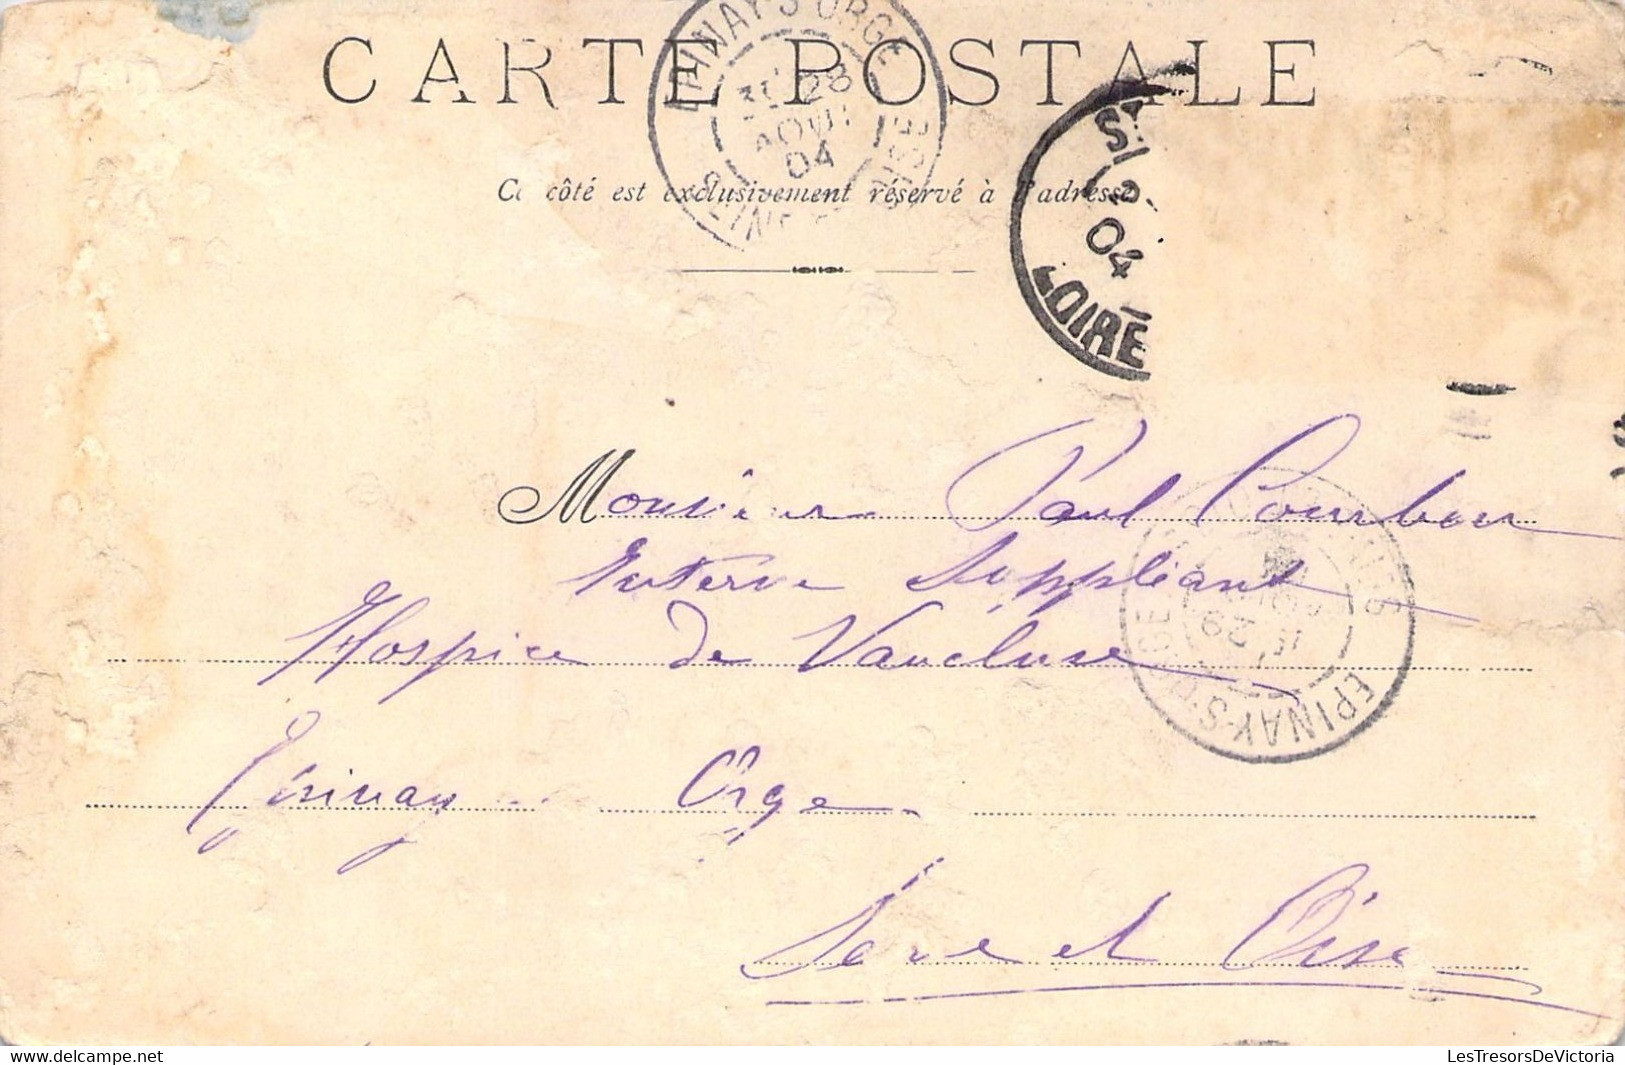 CARTE POSTALE
Ce côté est exclusivement réservé à l'adresse
EPINAY-S-ORGE
3E 28
AOUT
04
SEINE-ET-OISE
04
LOIRE
Monsieur Paul Courbon
Interne Suppléant
Hospice de Vaucluse
Epinay Orge
Seine et Oise
29
EPINAY-S-ORGE
LesTresorsDeVictoria.com
LesTresorsDeVictoria